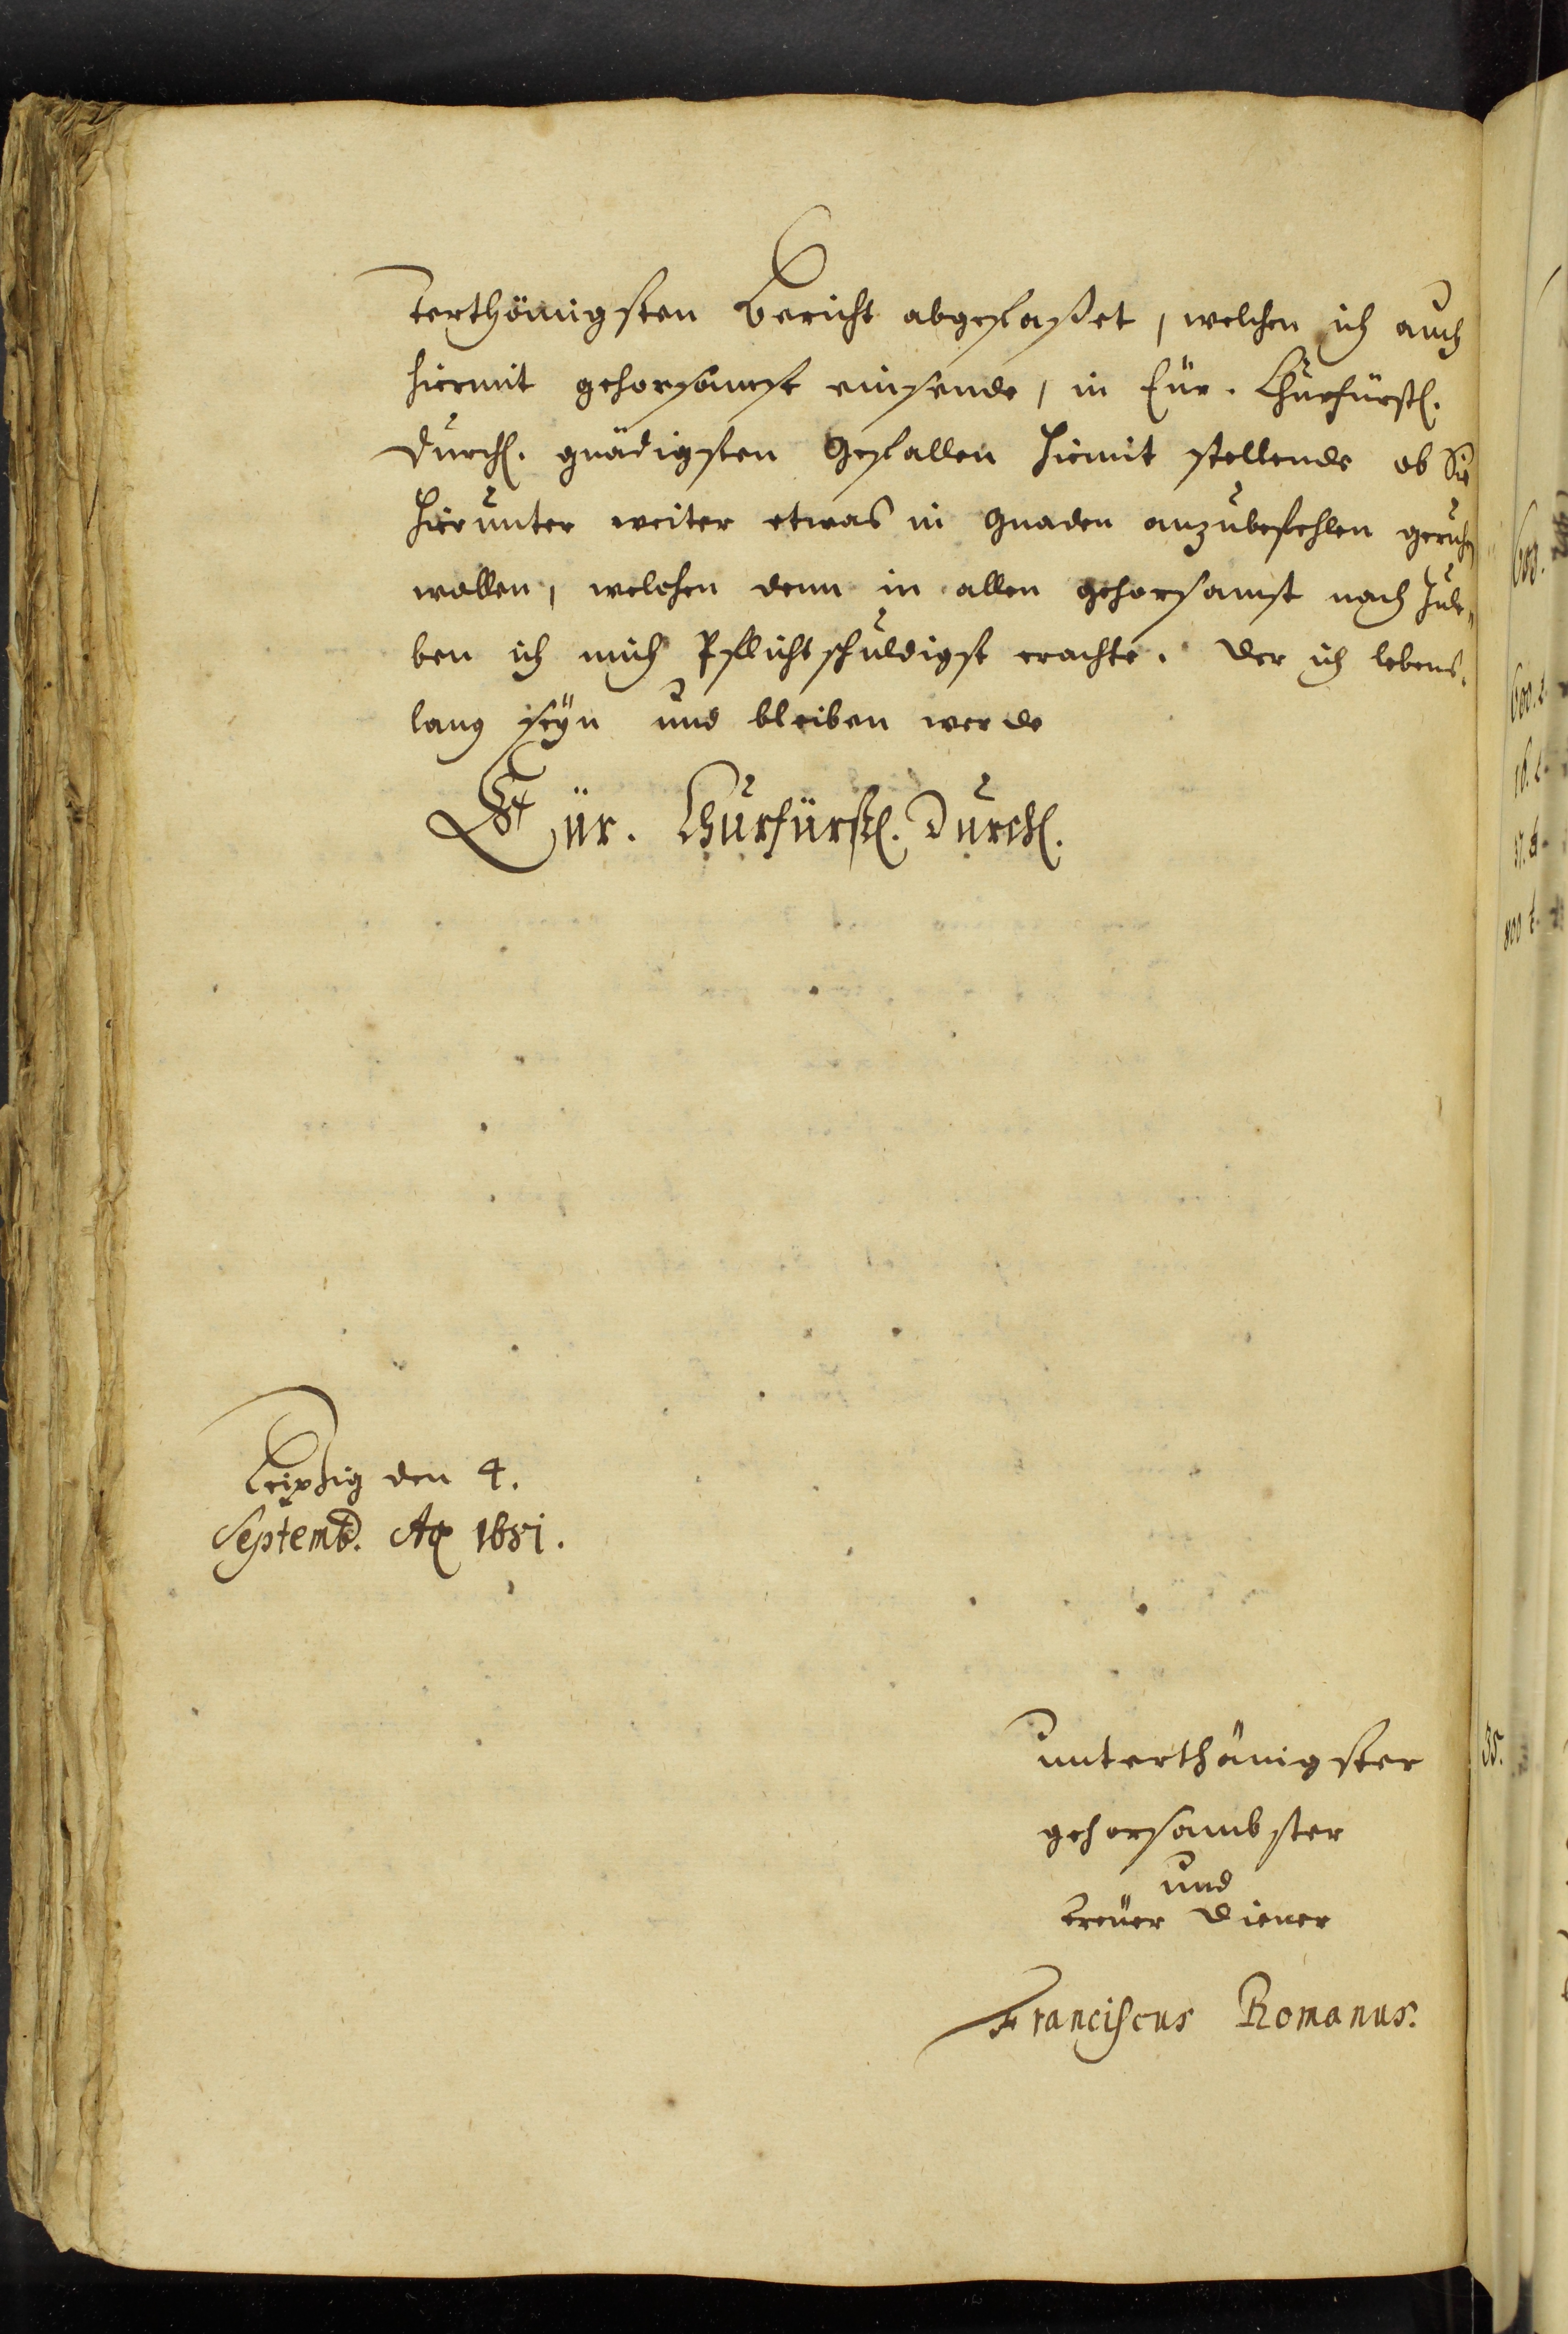 terthänigsten Bericht abgefaßet, welchen ich auch
hiermit gehorsamst einsende, in Eür. Churfürstl.
Durchl. gnädigsten Gefallen hiemit stellende ob Sie
hierunter weiter etwas in Gnaden anzubefehlen geruhen
wollen, welchen denn in allen gehorsamst nach zule„
ben ich mich Pflichtschuldigst erachte. Der ich lebens„
lang seÿn und bleiben werde
Eür. Churfürstl. Durchl.
Leipzig den 4.
Septemb. Ao 1681.
unterthänigster
gehorsambster
und
treüer Diener
Franciscus Romanus.